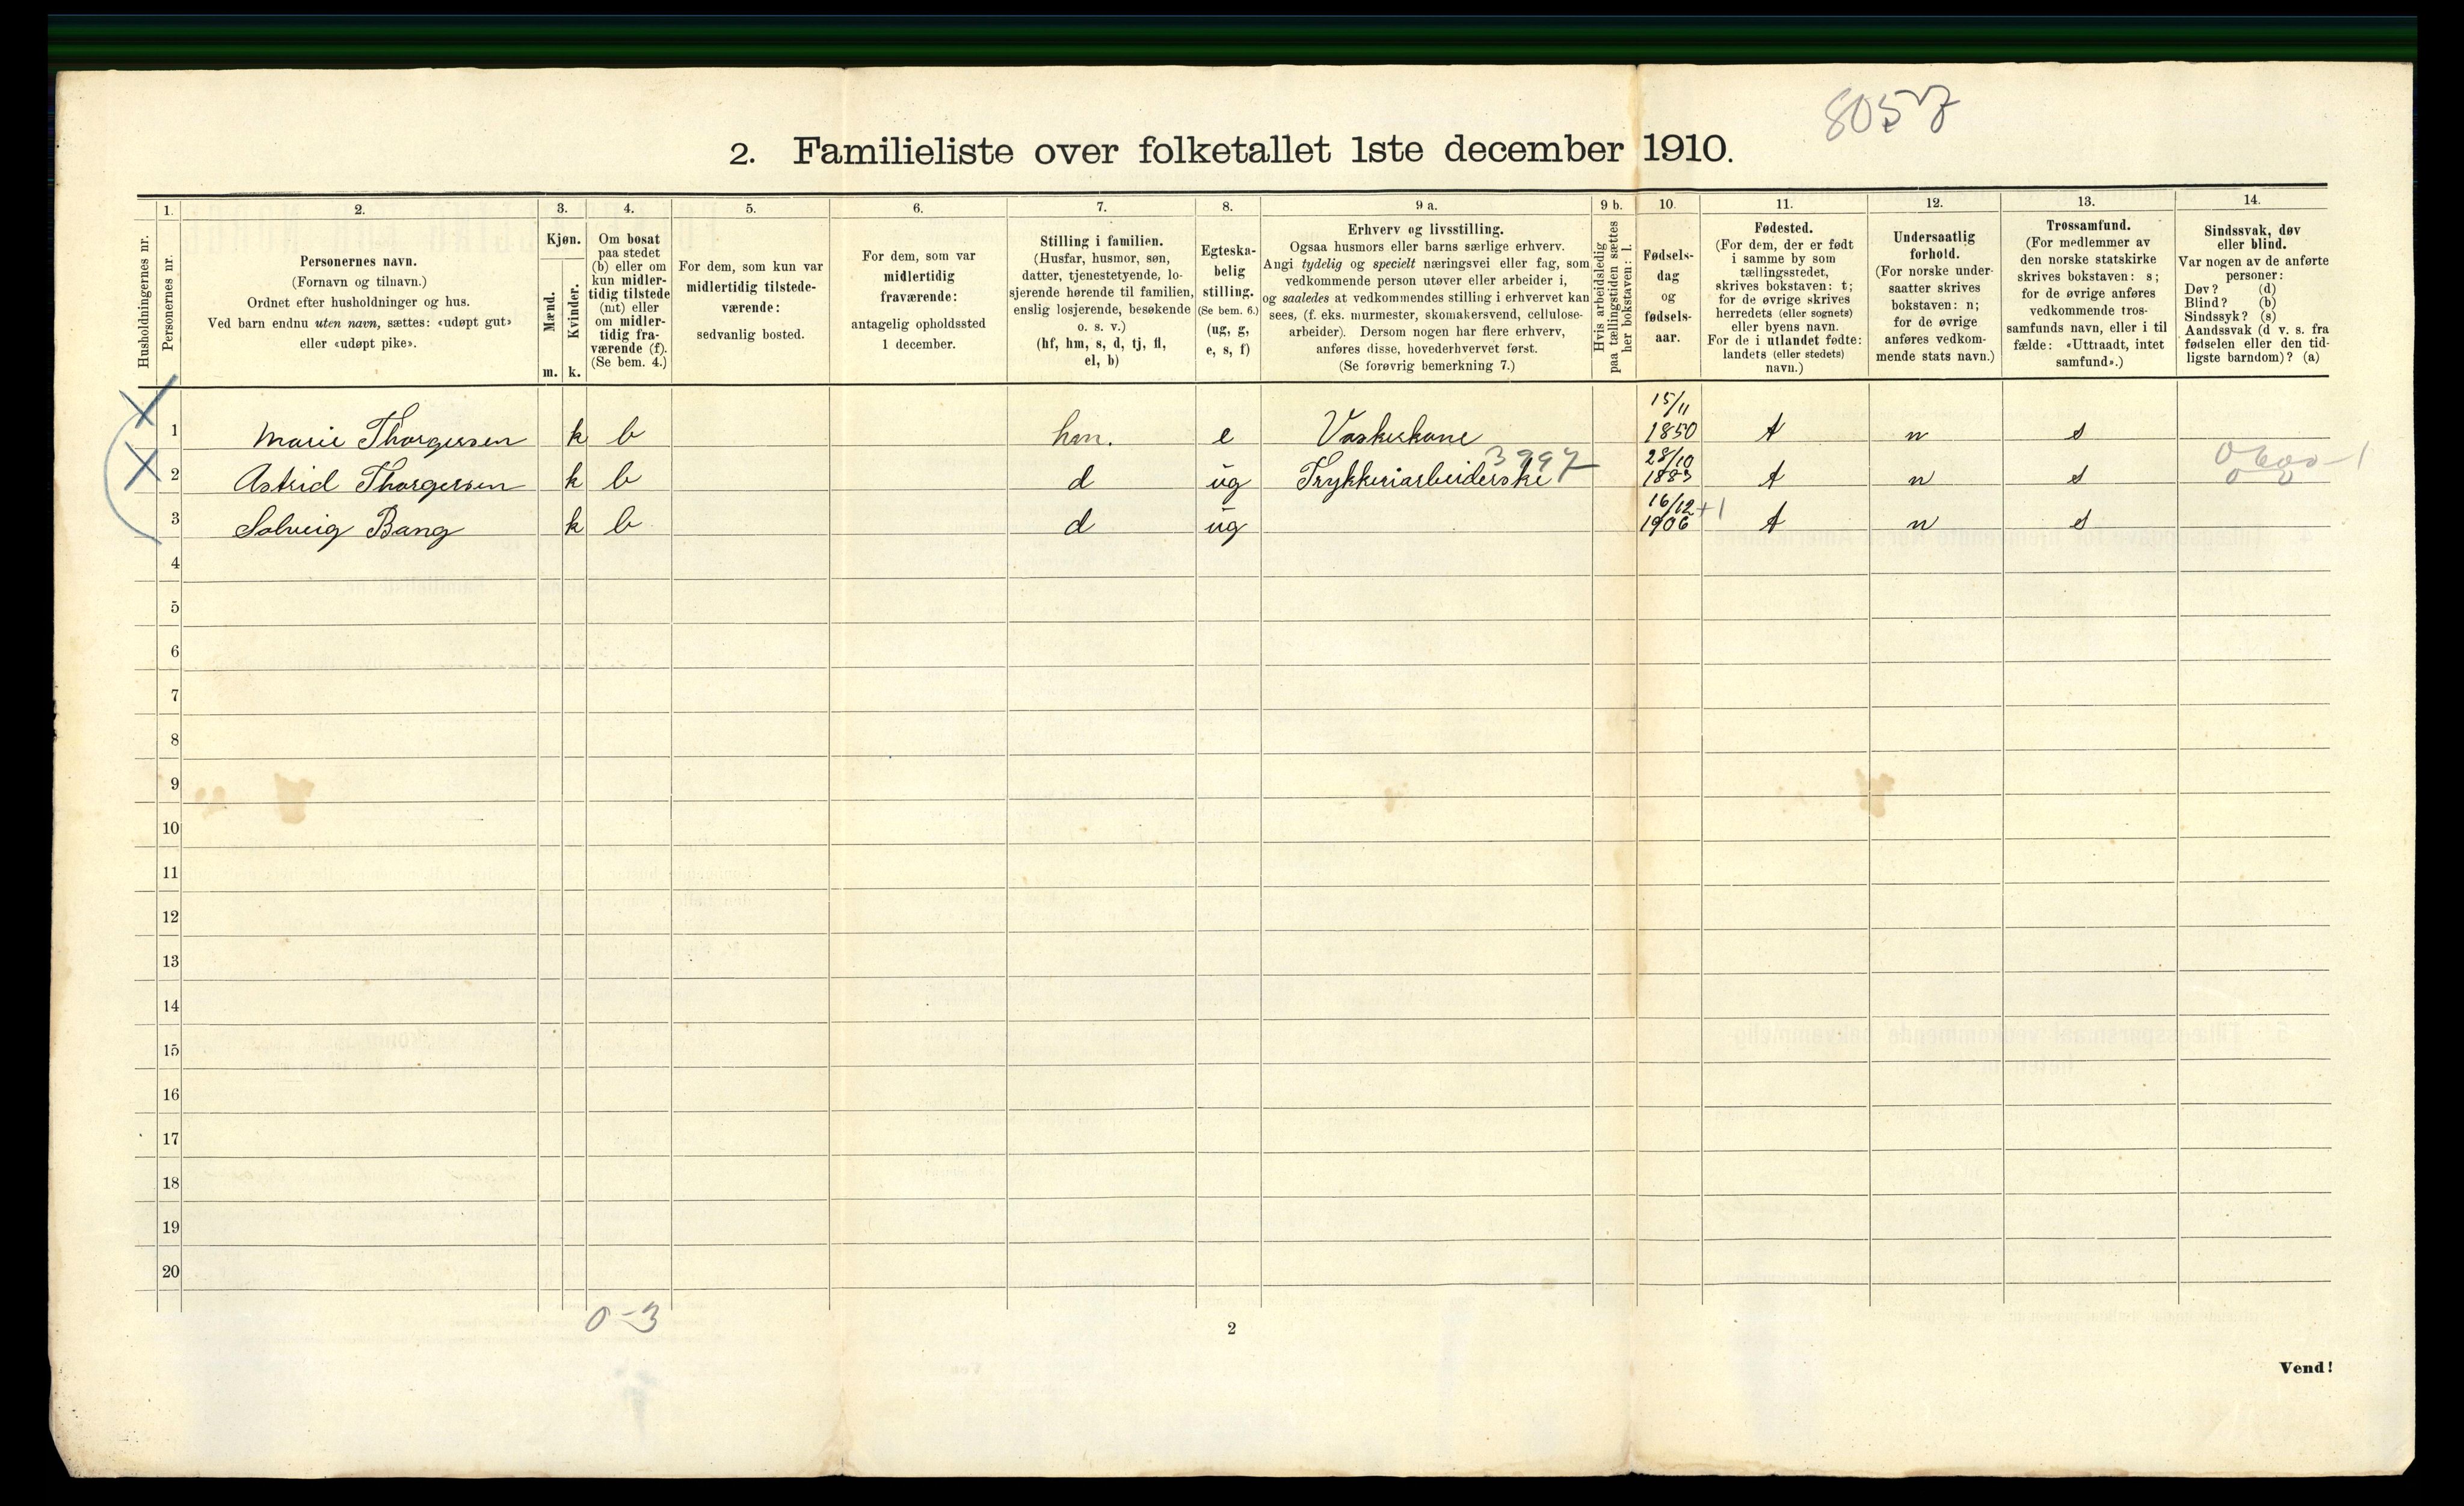 8057
2. Familieliste over folketallet 1ste december 1910.
Husholdningernes nr.
1.
Personernes nr.
2.
Personernes navn.
(Fornavn og tilnavn.)
Ordnet efter husholdninger og hus.
Ved barn endnu uten navn, sættes: «udøpt gut»
eller «udøpt pike».
3.
Kjøn.
Mænd.
Kvinder.
m. k.
4.
Om bosat
paa stedet
(b) eller om
kun midler-
tidig tilstede
(mt) eller
om midler-
tidig fra-
værende (f).
(Se bem. 4.)
5.
For dem, som kun var
midlertidig tilstede-
værende:
sedvanlig bosted.
6.
For dem, som var
midlertidig
fraværende:
antagelig opholdssted
1 december.
7.
Stilling i familien.
(Husfar, husmor, søn,
datter, tjenestetyende, lo-
sjerende hørende til familien,
enslig losjerende, besøkende
o. s. v.)
(hf, hm, s, d, tj, fl,
el, b)
8.
Egteska-
belig
stilling.
(Se bem. 6.)
(ug, g,
e, s, f)
9 a.
Erhverv og livsstilling.
Ogsaa husmors eller barns særlige erhverv.
Angi tydelig og specielt næringsvei eller fag, som
vedkommende person utøver eller arbeider i,
og saaledes at vedkommendes stilling i erhvervet kan
sees, (f. eks. murmester, skomakersvend, cellulose-
arbeider). Dersom nogen har flere erhverv,
anføres disse, hovederhvervet først.
(Se forøvrig bemerkning 7.)
9 b.
Hvis arbeidsledig
paa tællingstiden sættes
her bokstaven: l.
10.
Fødsels-
dag
og
fødsels-
aar.
11.
Fødested.
(For dem, der er født
i samme by som
tællingsstedet,
skrives bokstaven: t;
for de øvrige skrives
herredets (eller sognets)
eller byens navn.
For de i utlandet fødte:
landets (eller stedets)
navn.)
12.
Undersaatlig
forhold.
(For norske under-
saatter skrives
bokstaven: n;
for de øvrige
anføres vedkom-
mende stats navn.)
13.
Trossamfund.
(For medlemmer av
den norske statskirke
skrives bokstaven: s;
for de øvrige anføres
vedkommende tros-
samfunds navn, eller i til
fælde: «Uttraadt, intet
samfund».)
14.
Sindssvak, døv
eller blind.
Var nogen av de anførte
personer:
Døv? (d)
Blind? (b)
Sindssyk? (s)
Aandssvak (d v. s. fra
fødselen eller den tid-
ligste barndom)? (a)
1 Marie Thorgersen k b hm. e Vaskekone 15/11 1850 t n s
3997
2 Astrid Thorgersen k b d ug Trykkeriarbeiderske 28/10 1883 t n s
3 Solveig Bang k b d ug 16/12 1906 +1 t n s
4
5
6
7
8
9
10
11
12
13
14
15
16
17
18
19
20
0-3
2
Vend!